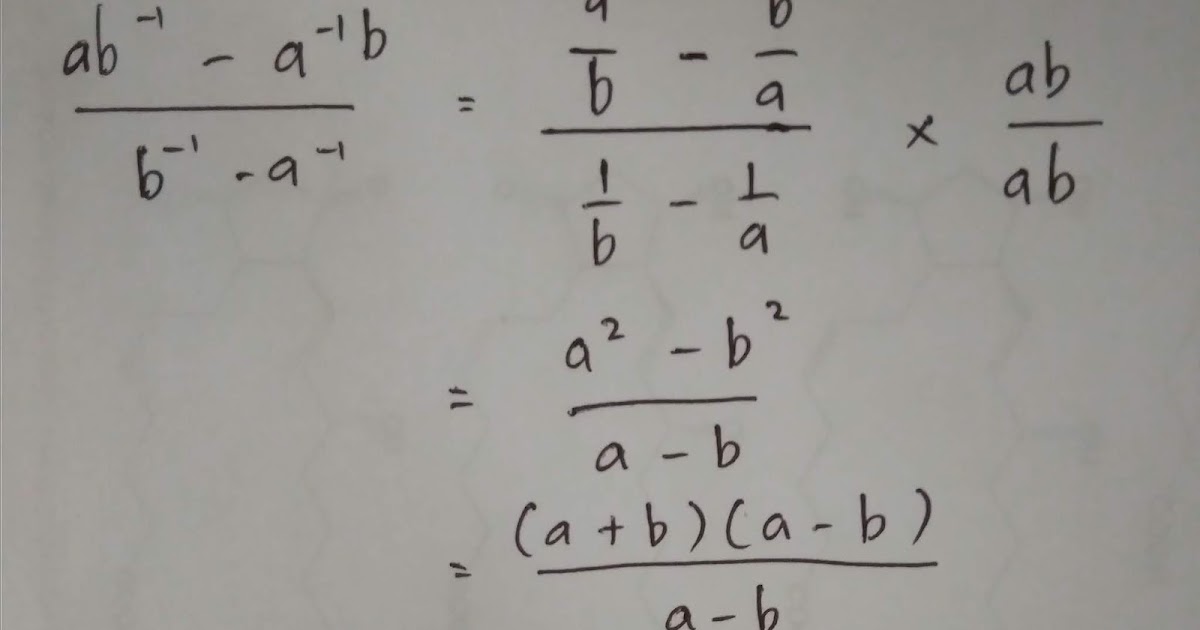 ab⁻¹ - a⁻¹b / b⁻¹ - a⁻¹ = a/b - b/a / 1/b - 1/a × ab/ab
= a² - b² / a - b
= (a + b)(a - b) / a - b